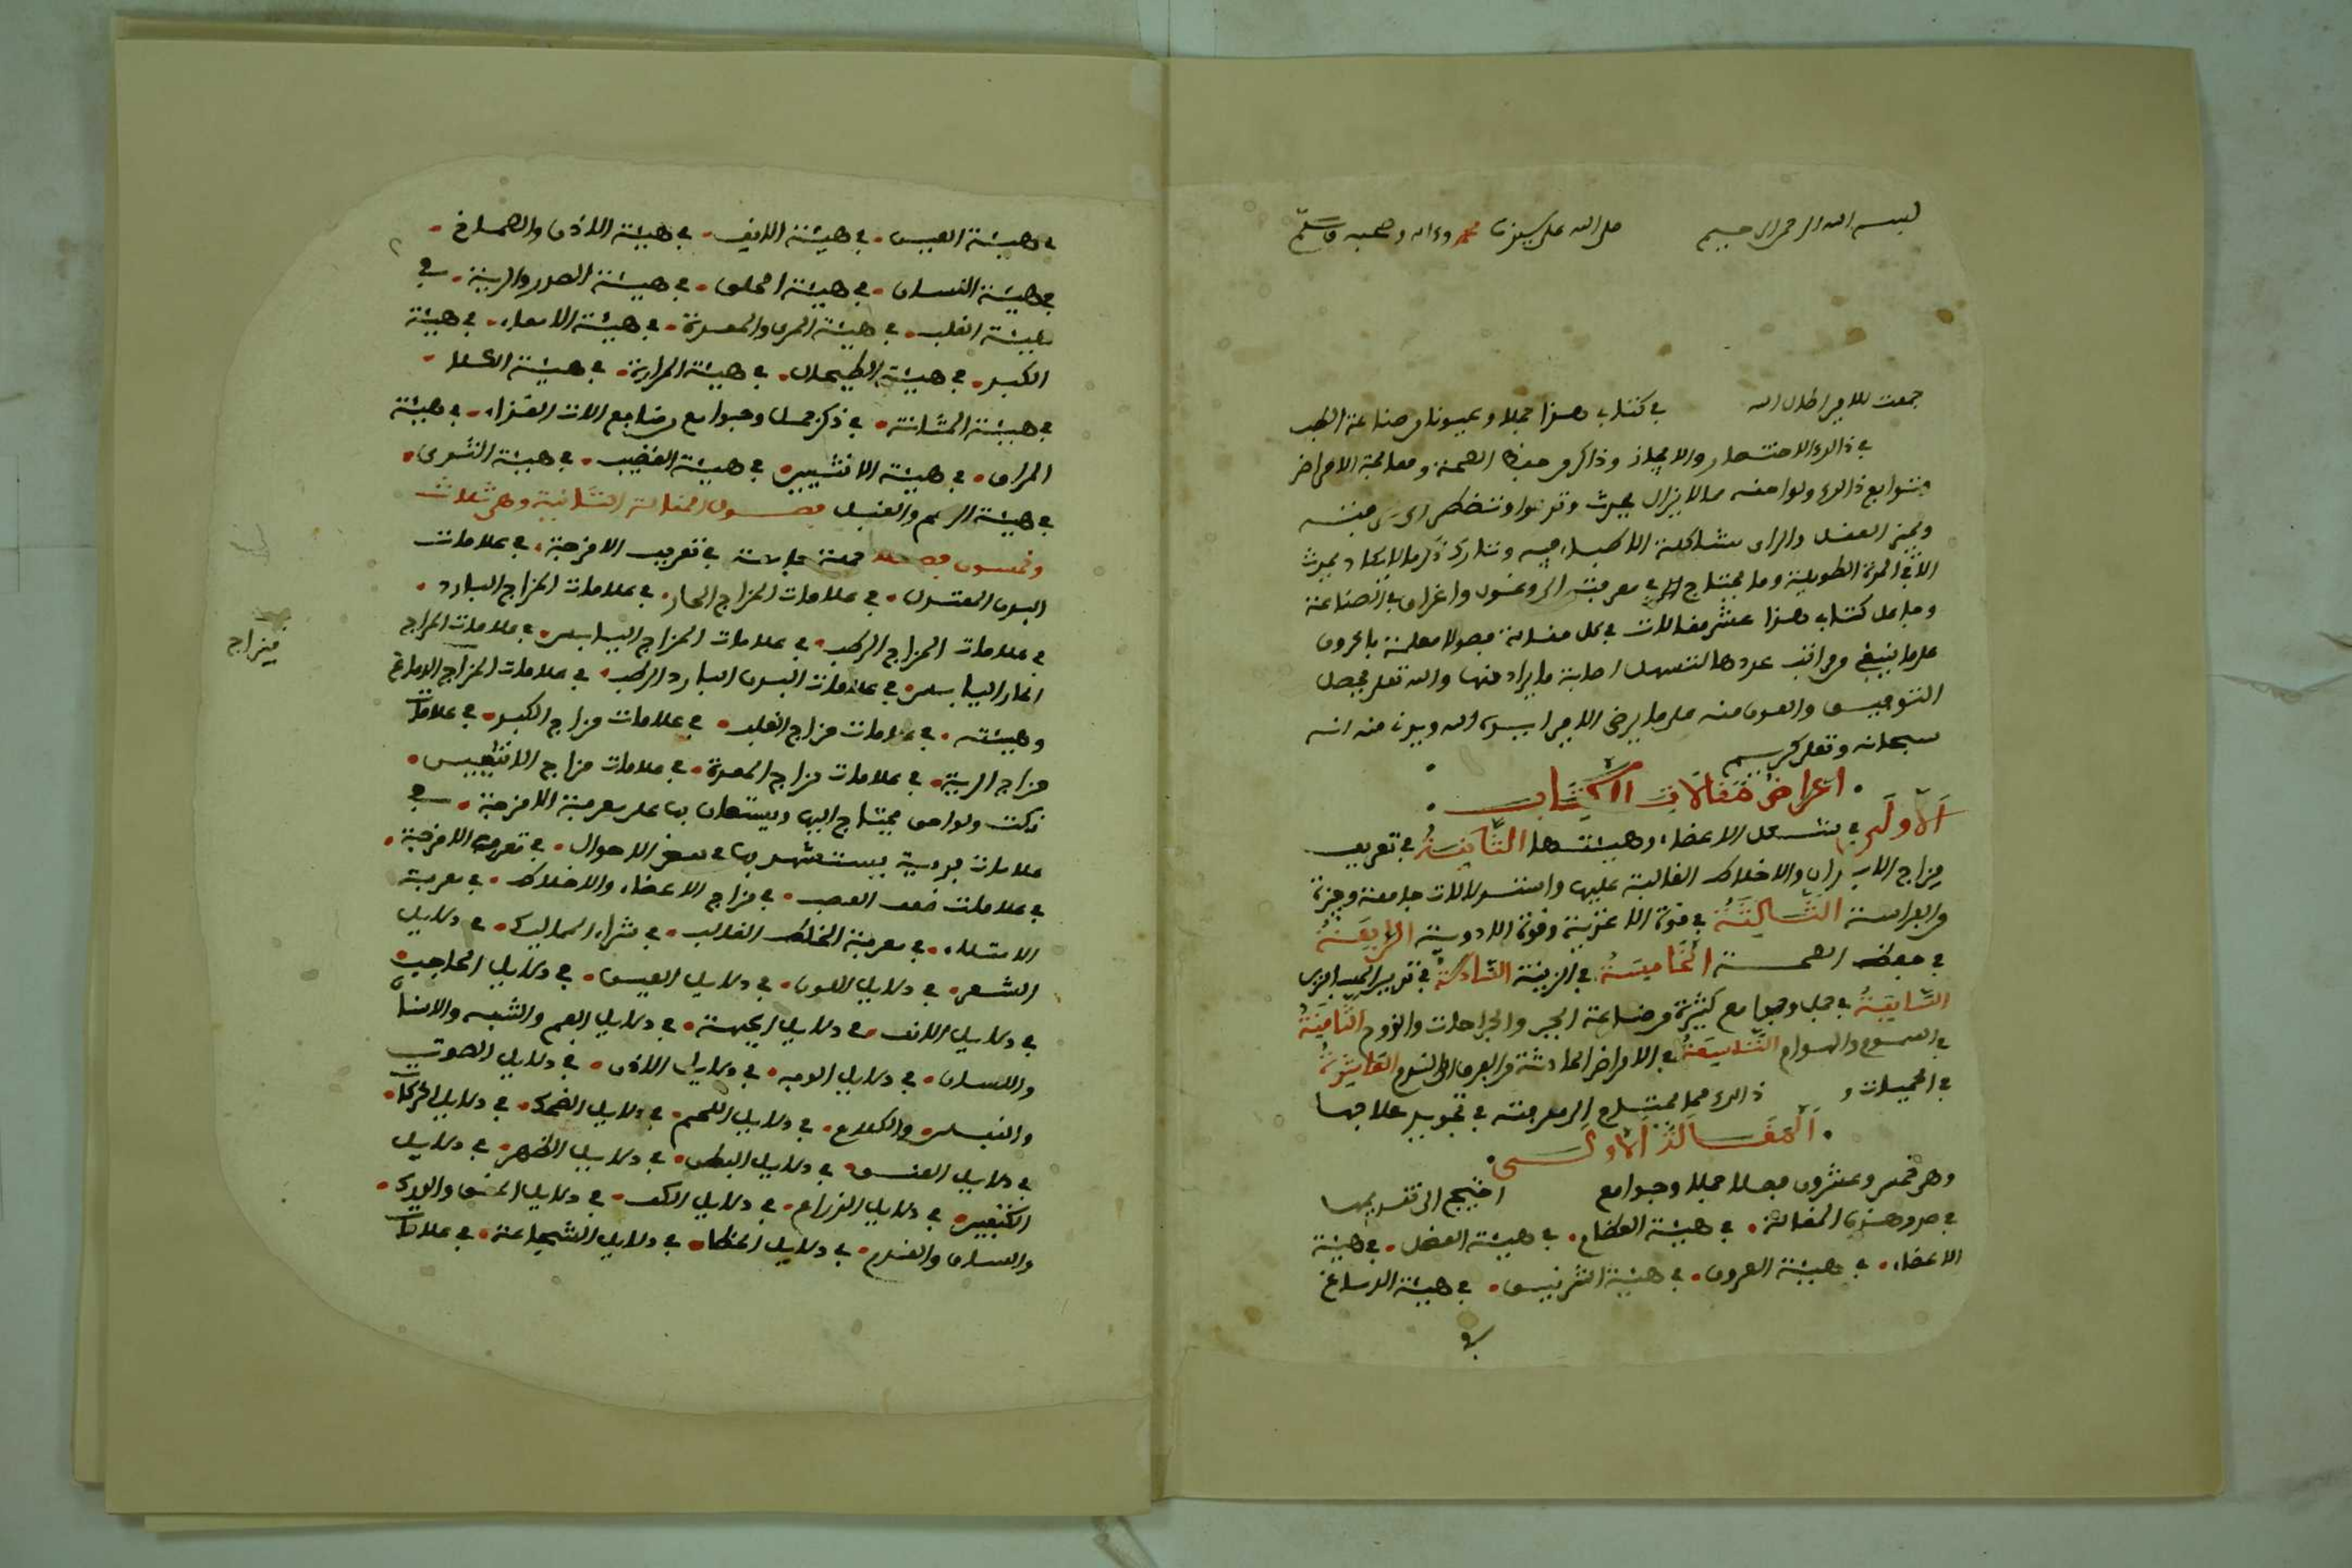 بسم الله الرحمن الرحيم صلى الله على سيدنا محمد وءاله وصحبه وسلم
جمعت للامير اطال الله في كتابي هذا جملا وعيونا من صناعة الطب
في ذلك الاختصار والايجاز وذاكر من حفظ الصحة ومعالجة الامراض
وتوابع ذلك ولواحقه ما لا يزال يحدث
الا في المدة الطويلة وما يحتاج الى معرفته
وجاعل كتابي هذا عشر مقالات في كل مقالة فصولا معلمة بالحروف
على ما ينبغي من مراتب عددها لتسهل اصابة ما يراد منها والله تعلى بفضل
التوفيق والعون منه على ما يرضى الامير ايده الله ويدن منه انه
سبحانه وتعلى كريم
اغراض مقالات الكتاب
الاولى في شكل الاعضاء وهيئتها الثانية في تعريف
مزاج الابدان والاخلاط الغالبة عليها واستدلالات جامعة وجيزة
من الفراسة الثالثة في قوة الاغذية وقوة الادوية الرابعة
في حفظ الصحة الخامسة في الزينة السادسة في تدبير
السابعة في جمل وجوامع كثيرة من صناعة الجبر والجراحات والقروح الثامنة
في السموم والهوام التاسعة في الامراض الحادثة من القرن الى القدم العاشرة
في الحميات و ذلك مما يحتاج الى معرفته في تجويد علاجها
المقالة الاولى
وهي خمس وعشرون فصلا جملا وجوامع احتيج الى تقديمها
في صدر هذه المقالة في هيئة العظام في هيئة العضل في هيئة
الاعضاء في هيئة العروق في هيئة الشرايين في هيئة الدماغ
في هيئة العين في هيئة الانف في هيئة الاذن والصماخ
في هيئة اللسان في هيئة الحلق في هيئة الصدر والرئة في
هيئة القلب في هيئة المرى والمعدة في هيئة الامعاء في هيئة
الكبد في هيئة الطيحال في هيئة المرارة في هيئة الكلا
في هيئة المثانة في ذكر جمل وجوامع من منافع الات الغذاء في هيئة
المراق في هيئة الانثيين في هيئة القضيب في هيئة الثدى
في هيئة الرحم والقبل فصول المقالة الثانية وهى ثلاث
وخمسون فصلا جملة جامعة في تعريف الامزجة في علامات
البدن المعتدل في علامات المزاج الحار في علامات المزاج البارد
في علامات المزاج الرطب في علامات المزاج اليابس في علامات المزاج
الحار اليابس في علامات البدن البارد الرطب في علامات المزاج الدماغ
وهيئته في علامات مزاج القلب في علامات مزاج الكبد في علامات
مزاج الرية في علامات مزاج المعدة في علامات مزاج الانثيين
نكت ولواحق يحتاج اليها ويستعان بها على معرفة الامزجة في
علامات يستشهد بها في بعض الاحوال في تعرف الامزجة
في علامات ضعف العصب في مزاج الاعضاء والاخلاط في معرفة
الامتلاء في معرفة الخلط الغالب في شراء المماليك في دلايل
الشعر في دلايل اللون في دلايل العين في دلايل الحاجب
في دلايل الانف في دلايل الجبهة في دلايل الفم والشفه والاسنان
واللسان في دلايل الوجه في دلايل الاذن في دلايل الصوت
والنفس والكلام في دلايل اللحم في دلايل الضحك في دلايل الحركات
في دلايل العنق في دلايل البطن في دلايل الظهر في دلايل
الكتفين في دلايل الذراع في دلايل الكف في دلايل الحقو والورك
والساق والقدم في دلايل الخطا في دلايل الشجاعة في علامات
مزاج